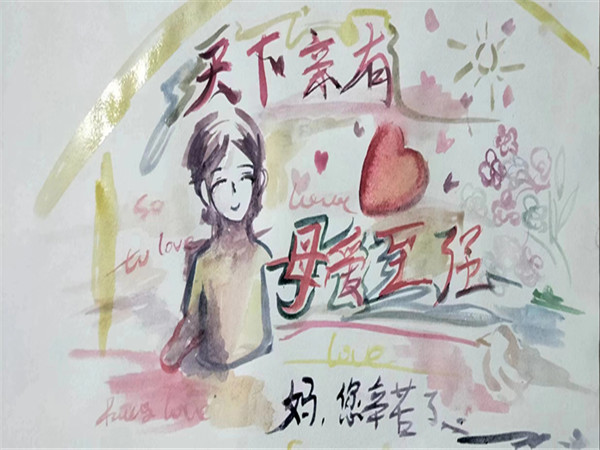 天下亲有
so
love
to love
母爱至强
love
love
妈,您辛苦了